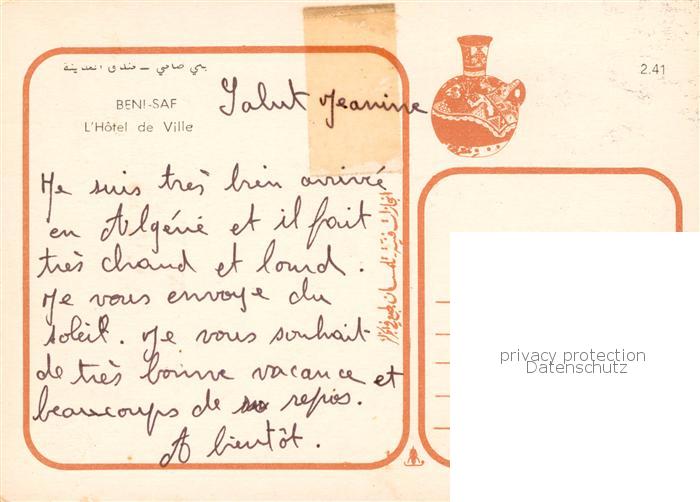 بني صافي — فندق المدينة
2.41
BENI-SAF
L'Hôtel de Ville
Salut Jeanine
Je suis très bien arrivré
en Algérie et il fait
très chaud et lourd.
Je vous envoye du
soleil. Je vous souhait
de très bonne vacance et
beaucoups de repos.
A bientôt.
privacy protection
Datenschutz